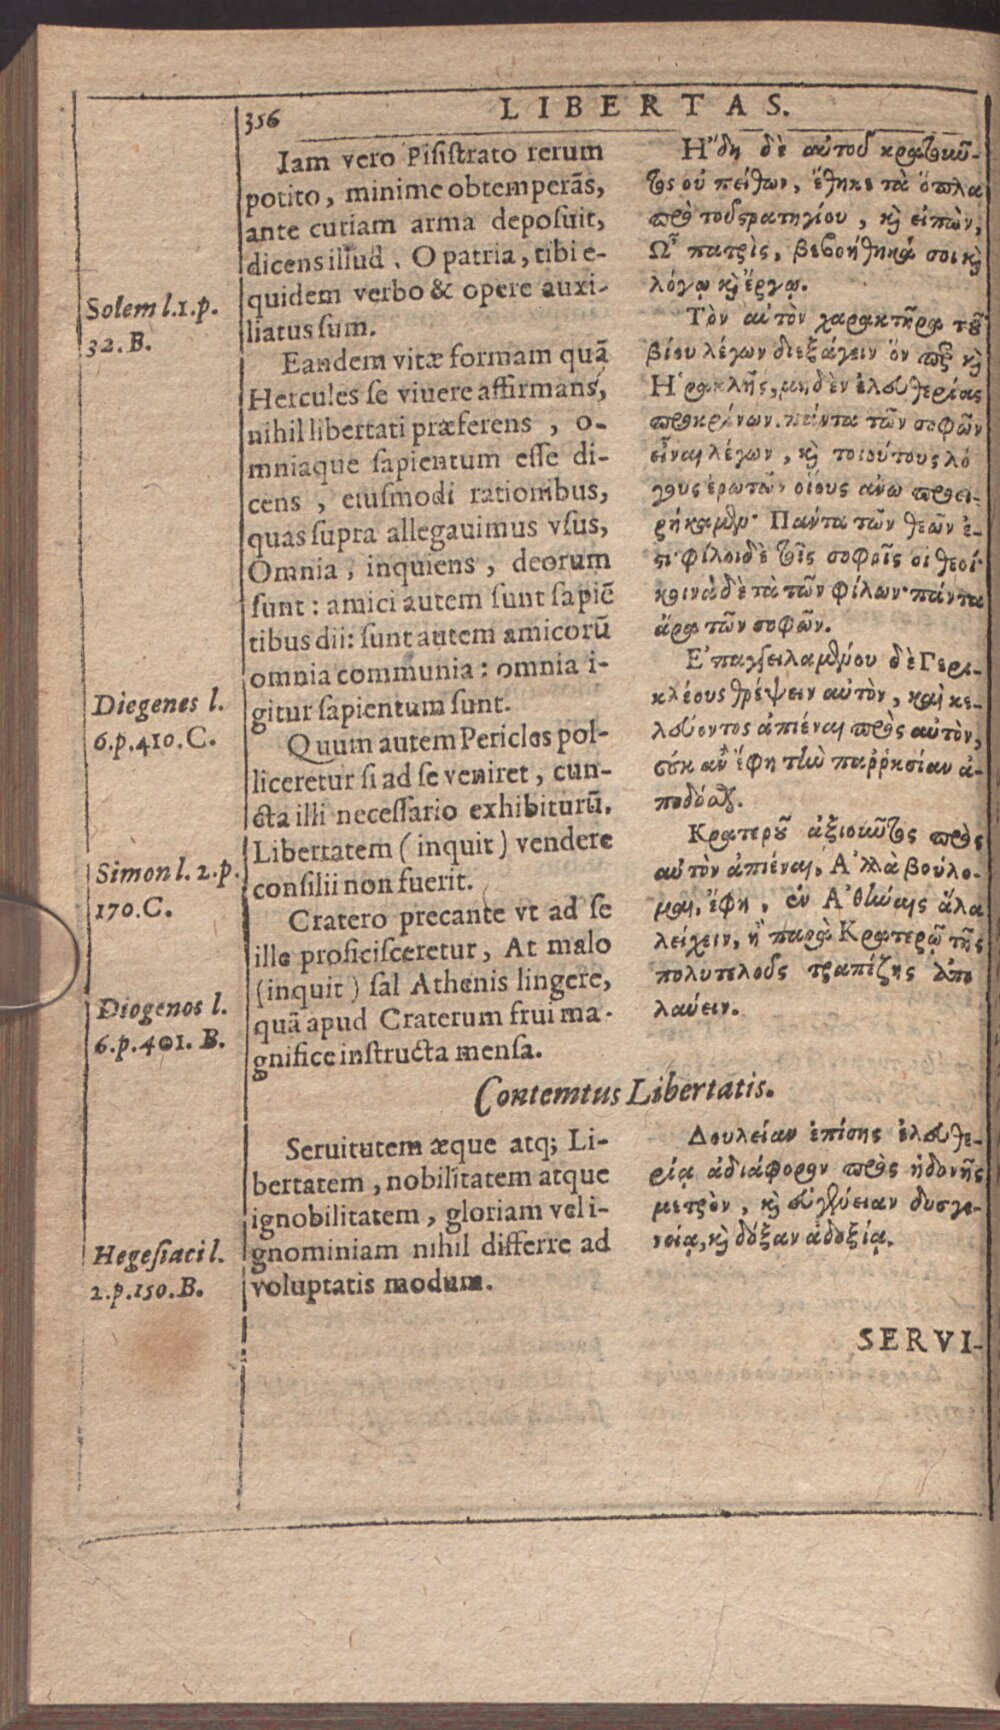 356
LIBERTAS.
Iam vero Pisistrato rerum
potito, minime obtemperãs,
ante curiam arma deposuit,
dicens illud. O patria, tibi e-
quidem verbo & opere auxi-
liatus sum.
Eandem vitæ formam quã
Hercules se viuere affirmans,
nihil libertati præferens, o-
mniaque sapientum esse di-
cens, eiusmodi rationibus,
quas supra allegauimus vsus,
Omnia, inquiens, deorum
sunt: amici autem sunt sapiẽ
tibus dii: sunt autem amicorũ
omnia communia: omnia i-
gitur sapientum sunt.
Quum autem Pericles pol-
liceretur si ad se veniret, cun-
cta illi necessario exhibiturũ.
Libertatem (inquit) vendere
consilii non fuerit.
Cratero precante vt ad se
ille proficisceretur, At malo
(inquit) sal Athenis lingere,
quã apud Craterum frui ma-
gnifice instructa mensa.
Solem l.1.p.
32.B.
Diegenes l.
6.p.410.C.
Simon l.2.p.
170.C.
Diogenes l.
6.p.401.B.
Ἤδη δὲ αὐτοῦ κρατοῦν-
τος οὐ πείθων, ἔθηκε τὰ ὅπλα
πρὸ τοῦ στρατηγίου, καὶ εἰπὼν,
Ὦ πατρὶς, βεβοήθηκά σοι καὶ
λόγῳ καὶ ἔργῳ.
Τὸν αὐτὸν χαρακτῆρα τοῦ
βίου λέγων διεξάγειν ὅν περ καὶ
Ἡρακλῆς, μηδὲν ἐλευθερίας
προκρίνων. πάντα τῶν σοφῶν
εἶναι λέγων, καὶ τοιούτους λό
γους ἐρωτῶν οἵους ἄνω προει-
ρήκαμεν· Πάντα τῶν θεῶν ἐ-
στι· φίλοι δὲ τοῖς σοφοῖς οἱ θεοί·
κοινὰ δὲ τὰ τῶν φίλων· πάντα
ἄρα τῶν σοφῶν.
Ἐπαγγειλαμένου δὲ Περι-
κλέους θρέψειν αὐτὸν, καὶ κε-
λεύοντος ἀπιέναι πρὸς αὐτὸν,
οὐκ ἂν ἔφη τὴν παῤῥησίαν ἀ-
ποδόσθαι.
Κρατεροῦ ἀξιοῦντος πρὸς
αὐτὸν ἀπιέναι, Ἀλλὰ βούλο-
μαι, ἔφη, ἐν Ἀθήναις ἅλα
λείχειν, ἢ παρὰ Κρατερῷ τῆς
πολυτελοῦς τραπέζης ἀπο
λαύειν.
Contemtus Libertatis.
Seruitutem æque atq; Li-
bertatem, nobilitatem atque
ignobilitatem, gloriam vel i-
gnominiam nihil differre ad
voluptatis modum.
Hegesiaci l.
2.p.150.B.
Δουλείαν ἐπίσης ἐλευθε-
ρίᾳ ἀδιάφορον πρὸς ἡδονῆς
μετρὸν, καὶ εὐγένειαν δυσγε-
νείᾳ, καὶ δόξαν ἀδοξίᾳ.
SERVI-